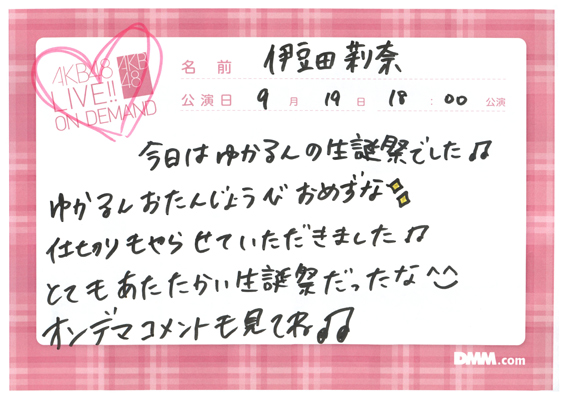 AKB48
LIVE!!
ON DEMAND
AKB
48
名前 伊豆田莉奈
公演日 9月19日 18:00 公演
今日はゆかるんの生誕祭でした♫
ゆかるんおたんじょうびおめずな
仕切りもやらせていただきました♫
とてもあたたかい生誕祭だったな^^
オンデマコメントも見てね♫
DMM.com